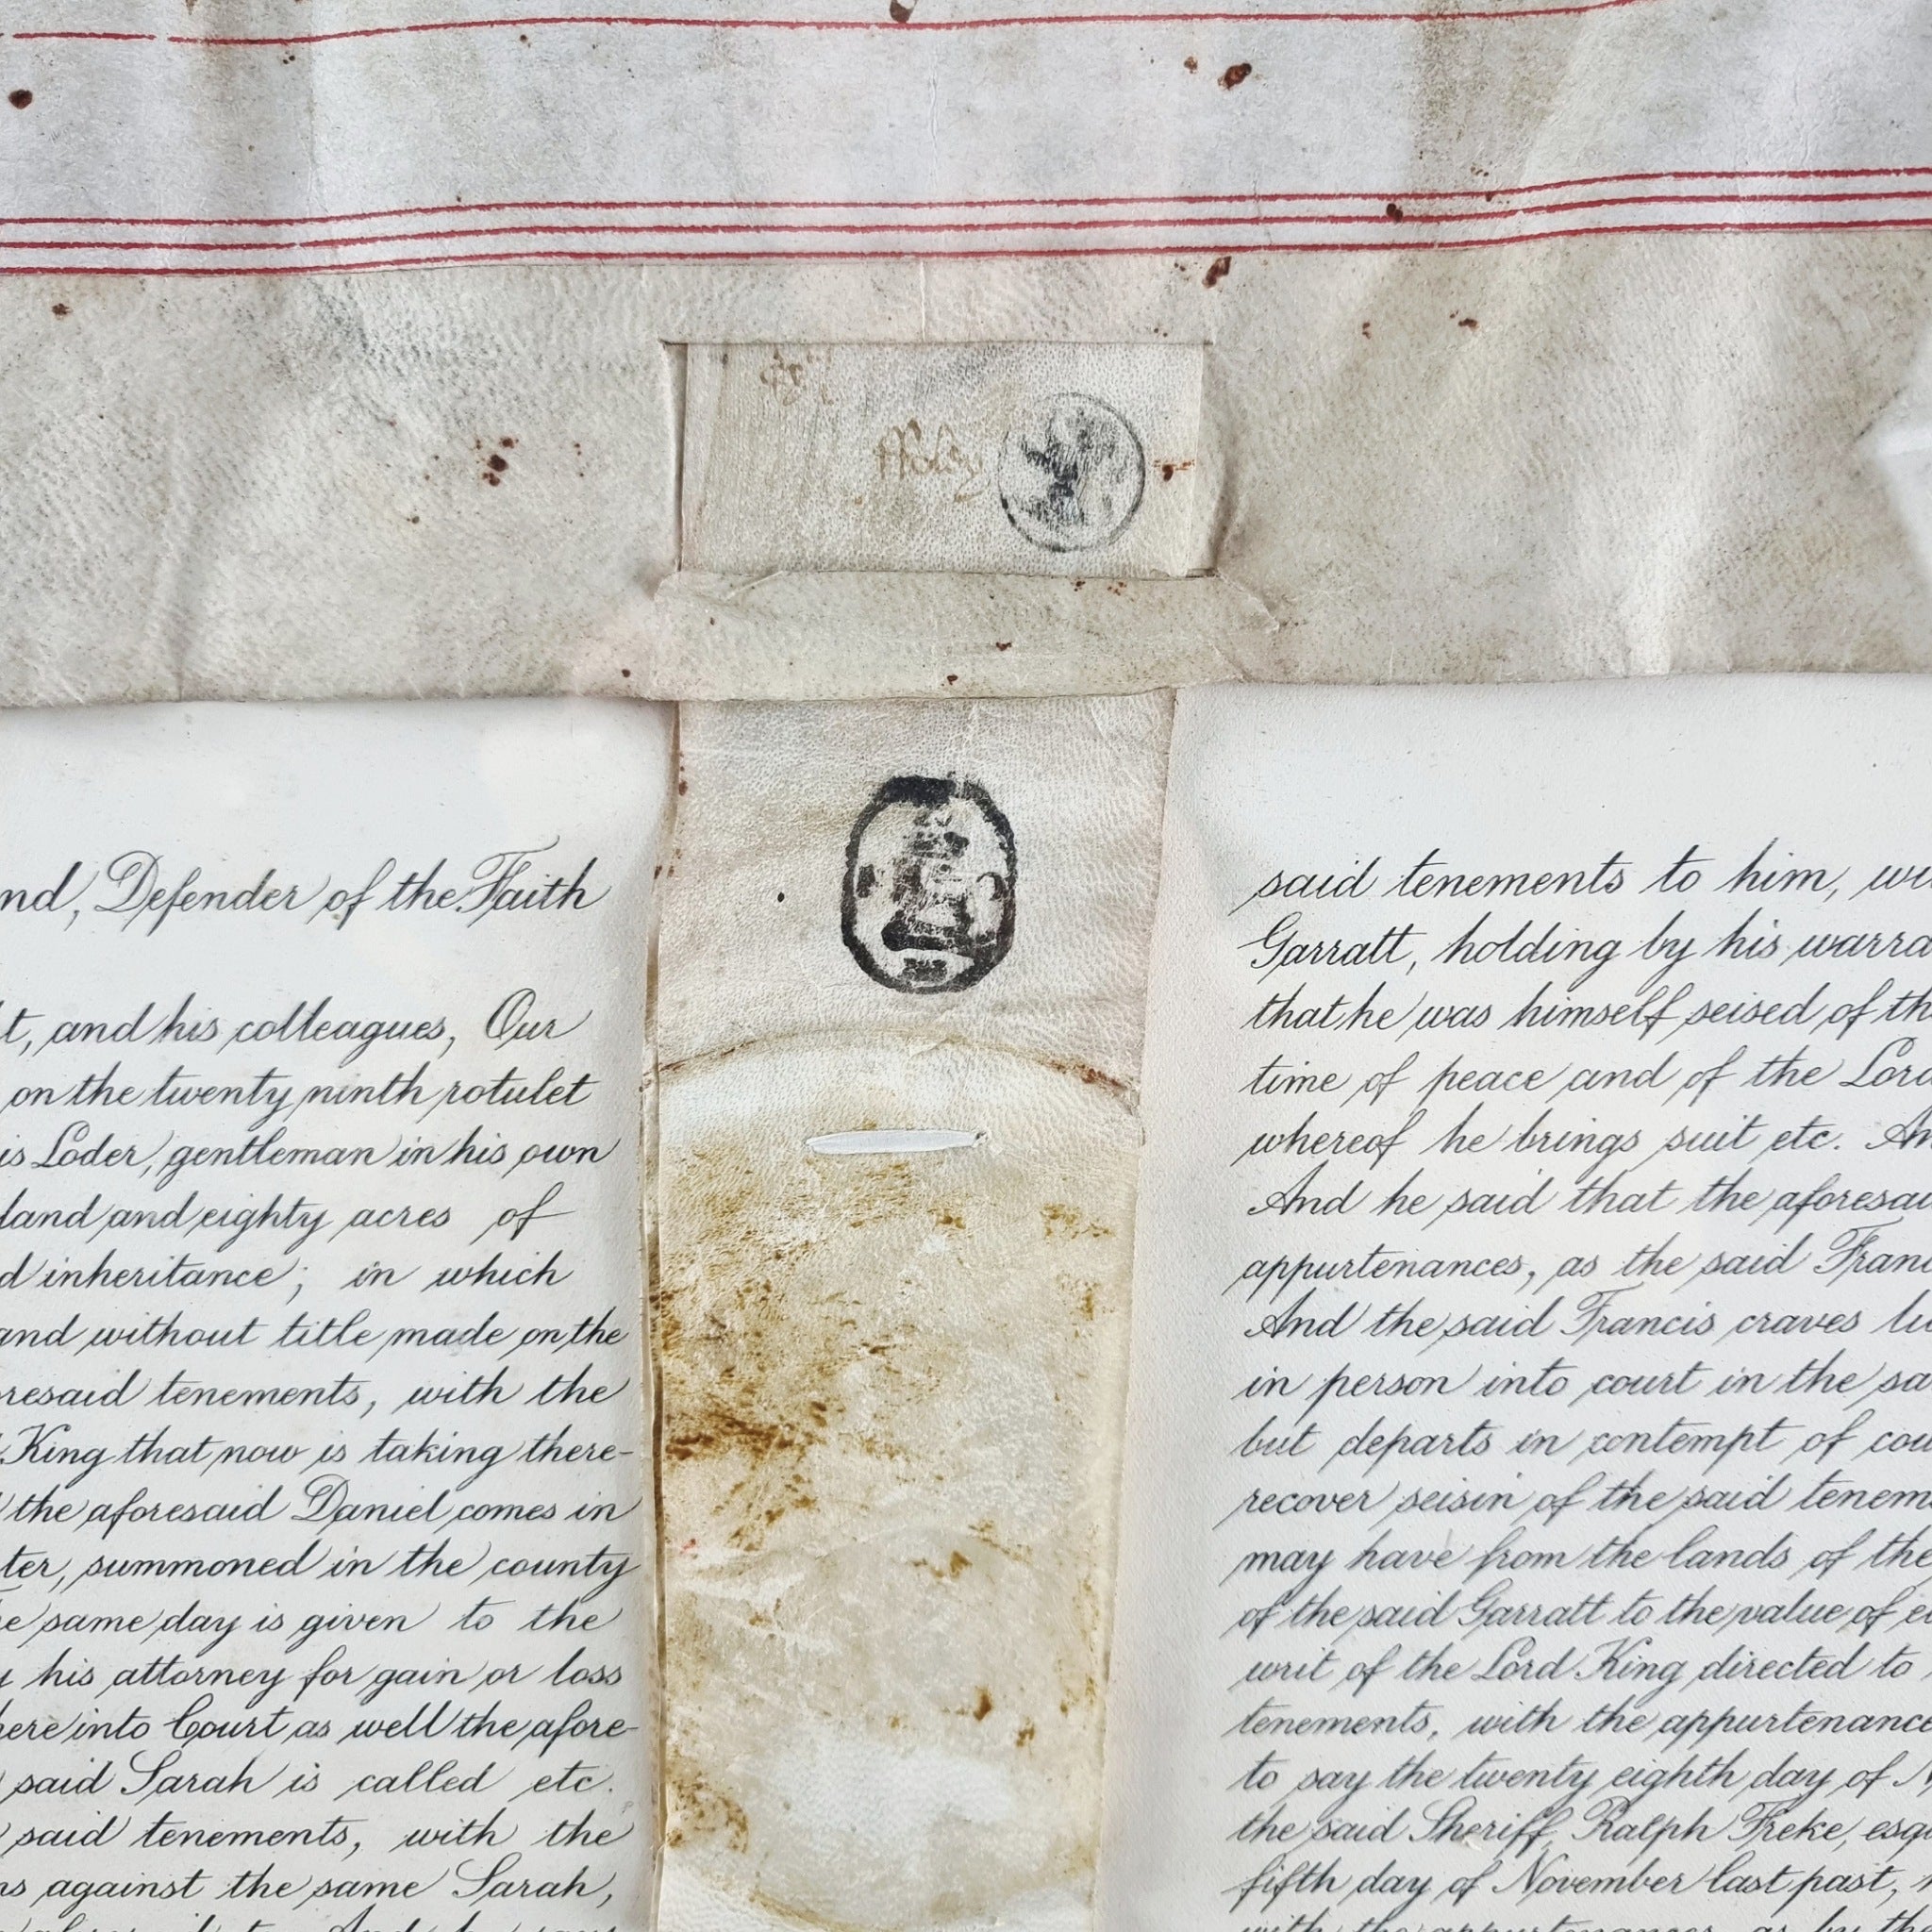 nd, Defender of the Faith
t, and his colleagues, Our
on the twenty ninth rotulet
is Loder, gentleman in his own
land and eighty acres of
d inheritance; in which
and without title made on the
resaid tenements, with the
King that now is taking there-
the aforesaid Daniel comes in
ter, summoned in the county
e same day is given to the
his attorney for gain or loss
here into Court as well the afore-
said Sarah is called etc.
said tenements, with the
ns against the same Sarah,
said tenements to him, wi
Garratt, holding by his warra
that he was himself seised of th
time of peace and of the Lord
whereof he brings suit etc. An
And he said that the aforesai
appurtenances, as the said Franc
And the said Francis craves
in person into court in the sa
but departs in contempt of cou
recover seisin of the said tenem
may have from the lands of the
of the said Garratt to the value of
writ of the Lord King directed to
tenements, with the appurtenance
to say the twenty eighth day of N
the said Sheriff, Ralph Freke, esq
fifth day of November last past,